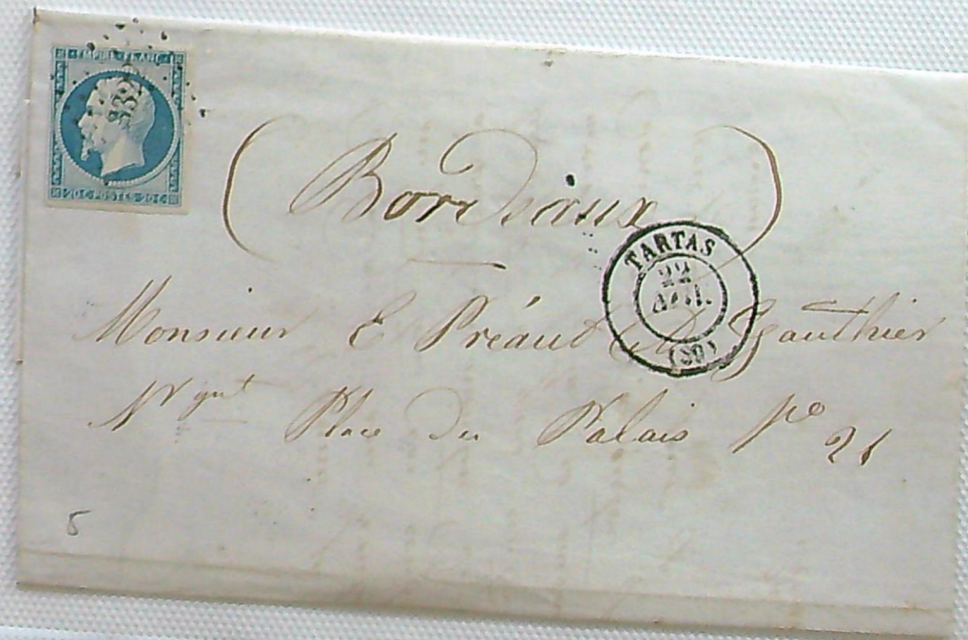 EMPIRE FRANC
20 C POSTES 20 C
(Bordeaux)
TARTAS
22
AVRIL
Monsieur E Préaut & Gauthier
Nég^nt Place du Palais N° 21
5